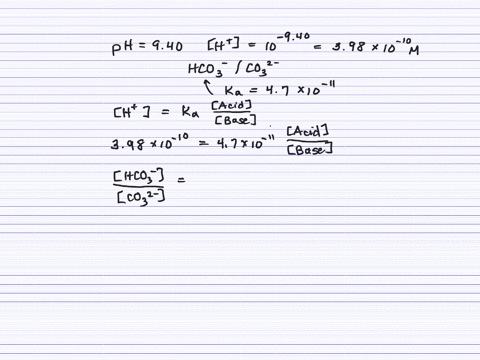 pH = 9.40 [H⁺] = 10^-9.40 = 3.98 × 10^-10 M
HCO₃⁻ / CO₃²⁻
Ka = 4.7 × 10^-11
[H⁺] = Ka [Acid]/[Base]
3.98 × 10^-10 = 4.7 × 10^-11 [Acid]/[Base]
[HCO₃⁻]/[CO₃²⁻] =